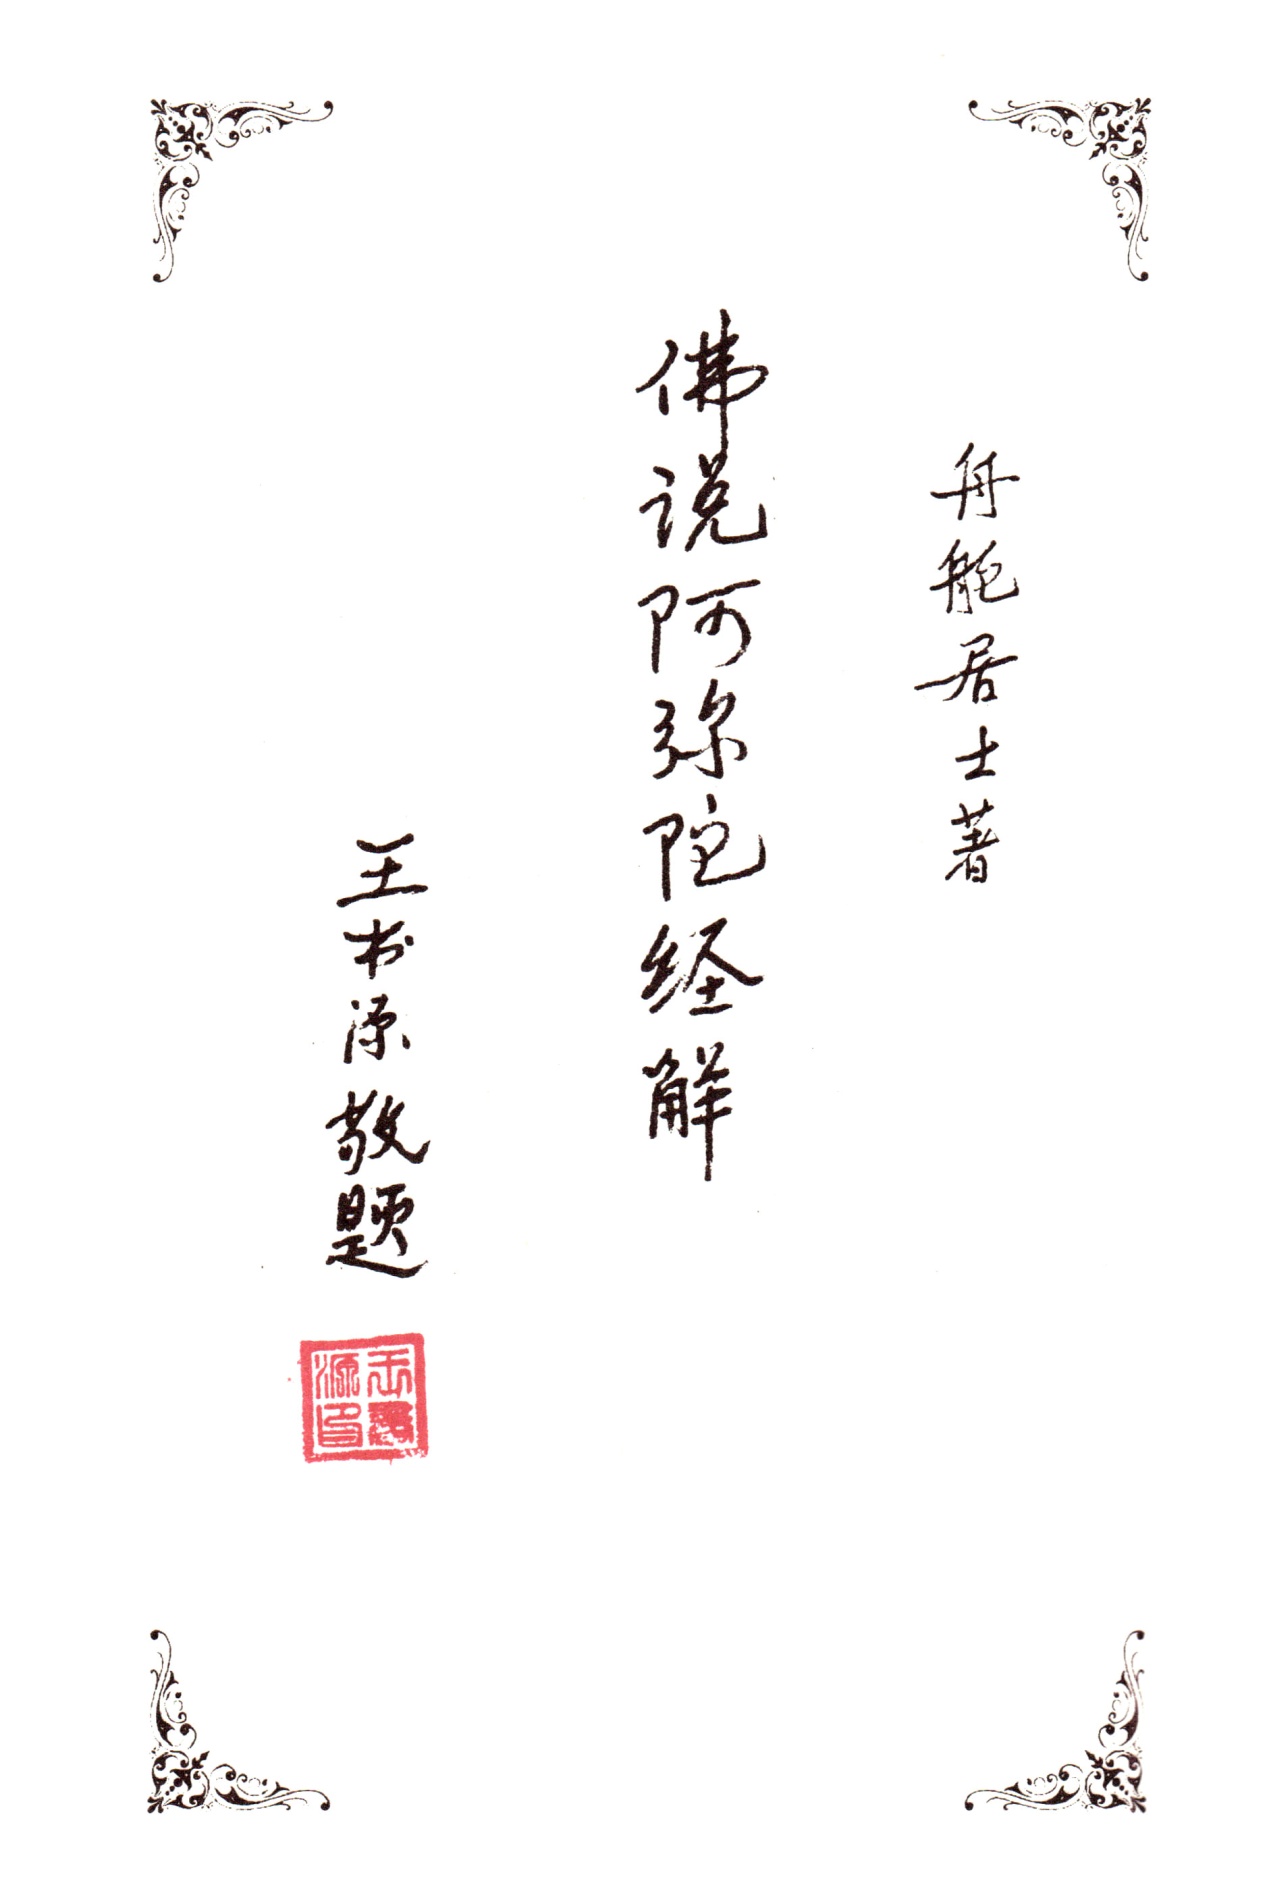 舟舵居士著
佛说阿弥陀经解
王书源敬题
王書源印